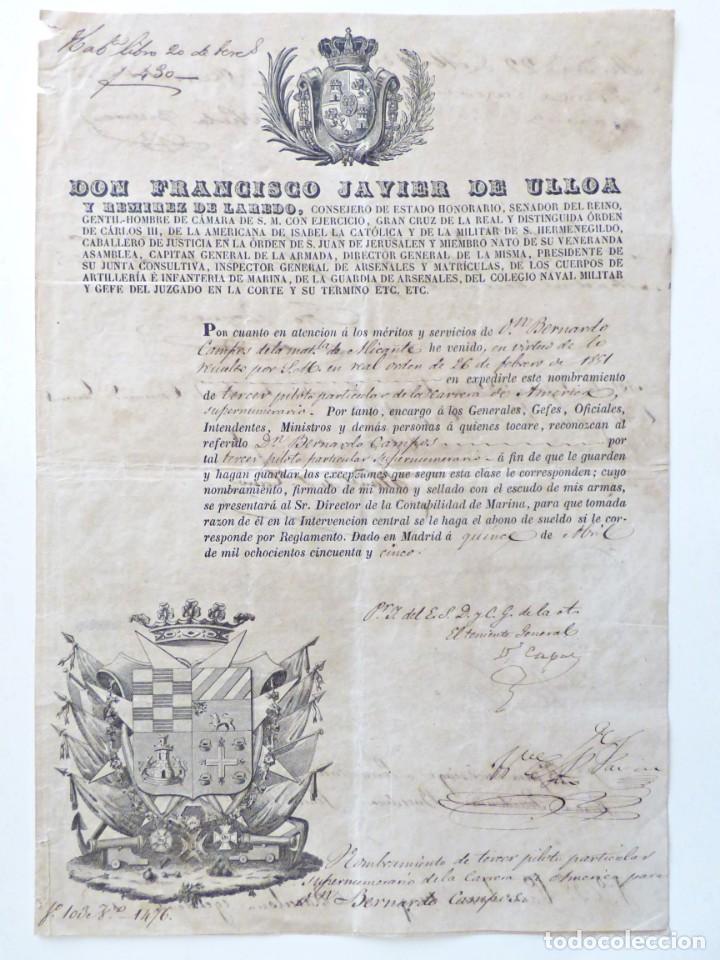 libro 20 de
f 430
DON FRANCISCO JAVIER DE ULLOA
Y REMIREZ DE LAREDO, CONSEJERO DE ESTADO HONORARIO, SENADOR DEL REINO,
GENTIL-HOMBRE DE CÁMARA DE S. M. CON EJERCICIO, GRAN CRUZ DE LA REAL Y DISTINGUIDA ÓRDEN
DE CÁRLOS III, DE LA AMERICANA DE ISABEL LA CATÓLICA Y DE LA MILITAR DE S. HERMENEGILDO,
CABALLERO DE JUSTICIA EN LA ÓRDEN DE S. JUAN DE JERUSALEN Y MIEMBRO NATO DE SU VENERANDA
ASAMBLEA, CAPITAN GENERAL DE LA ARMADA, DIRECTOR GENERAL DE LA MISMA, PRESIDENTE DE
SU JUNTA CONSULTIVA, INSPECTOR GENERAL DE ARSENALES Y MATRÍCULAS, DE LOS CUERPOS DE
ARTILLERÍA É INFANTERIA DE MARINA, DE LA GUARDIA DE ARSENALES, DEL COLEGIO NAVAL MILITAR
Y GEFE DEL JUZGADO EN LA CORTE Y SU TERMINO ETC. ETC.
Por cuanto en atencion á los méritos y servicios de Dn Bernardo
Campos de la matla de Alicante he venido, en virtud de lo
por S.M. en real orden de 26 de febrero de 1851
en expedirle este nombramiento
de tercer piloto particular de la carrera de América,
supernumerario. Por tanto, encargo á los Generales, Gefes, Oficiales,
Intendentes, Ministros y demás personas á quienes tocare, reconozcan al
referido Dn Bernardo Campos por
tal tercer piloto particular supernumerario á fin de que le guarden
y hagan guardar las excepciones que segun esta clase le corresponden; cuyo
nombramiento, firmado de mi mano y sellado con el escudo de mis armas,
se presentará al Sr. Director de la Contabilidad de Marina, para que tomada
razon de él en la Intervencion central se le haga el abono de sueldo si le cor-
responde por Reglamento. Dado en Madrid á quince de Abril
de mil ochocientos cincuenta y cinco.
Pr I. del E.S. D. y C. G. de la
El teniente General
Nombramiento de tercer piloto particular
supernumerario de la Carrera de America para
Dn Bernardo Campos
fo 103 No 1476.
todocoleccion
todocoleccion.net